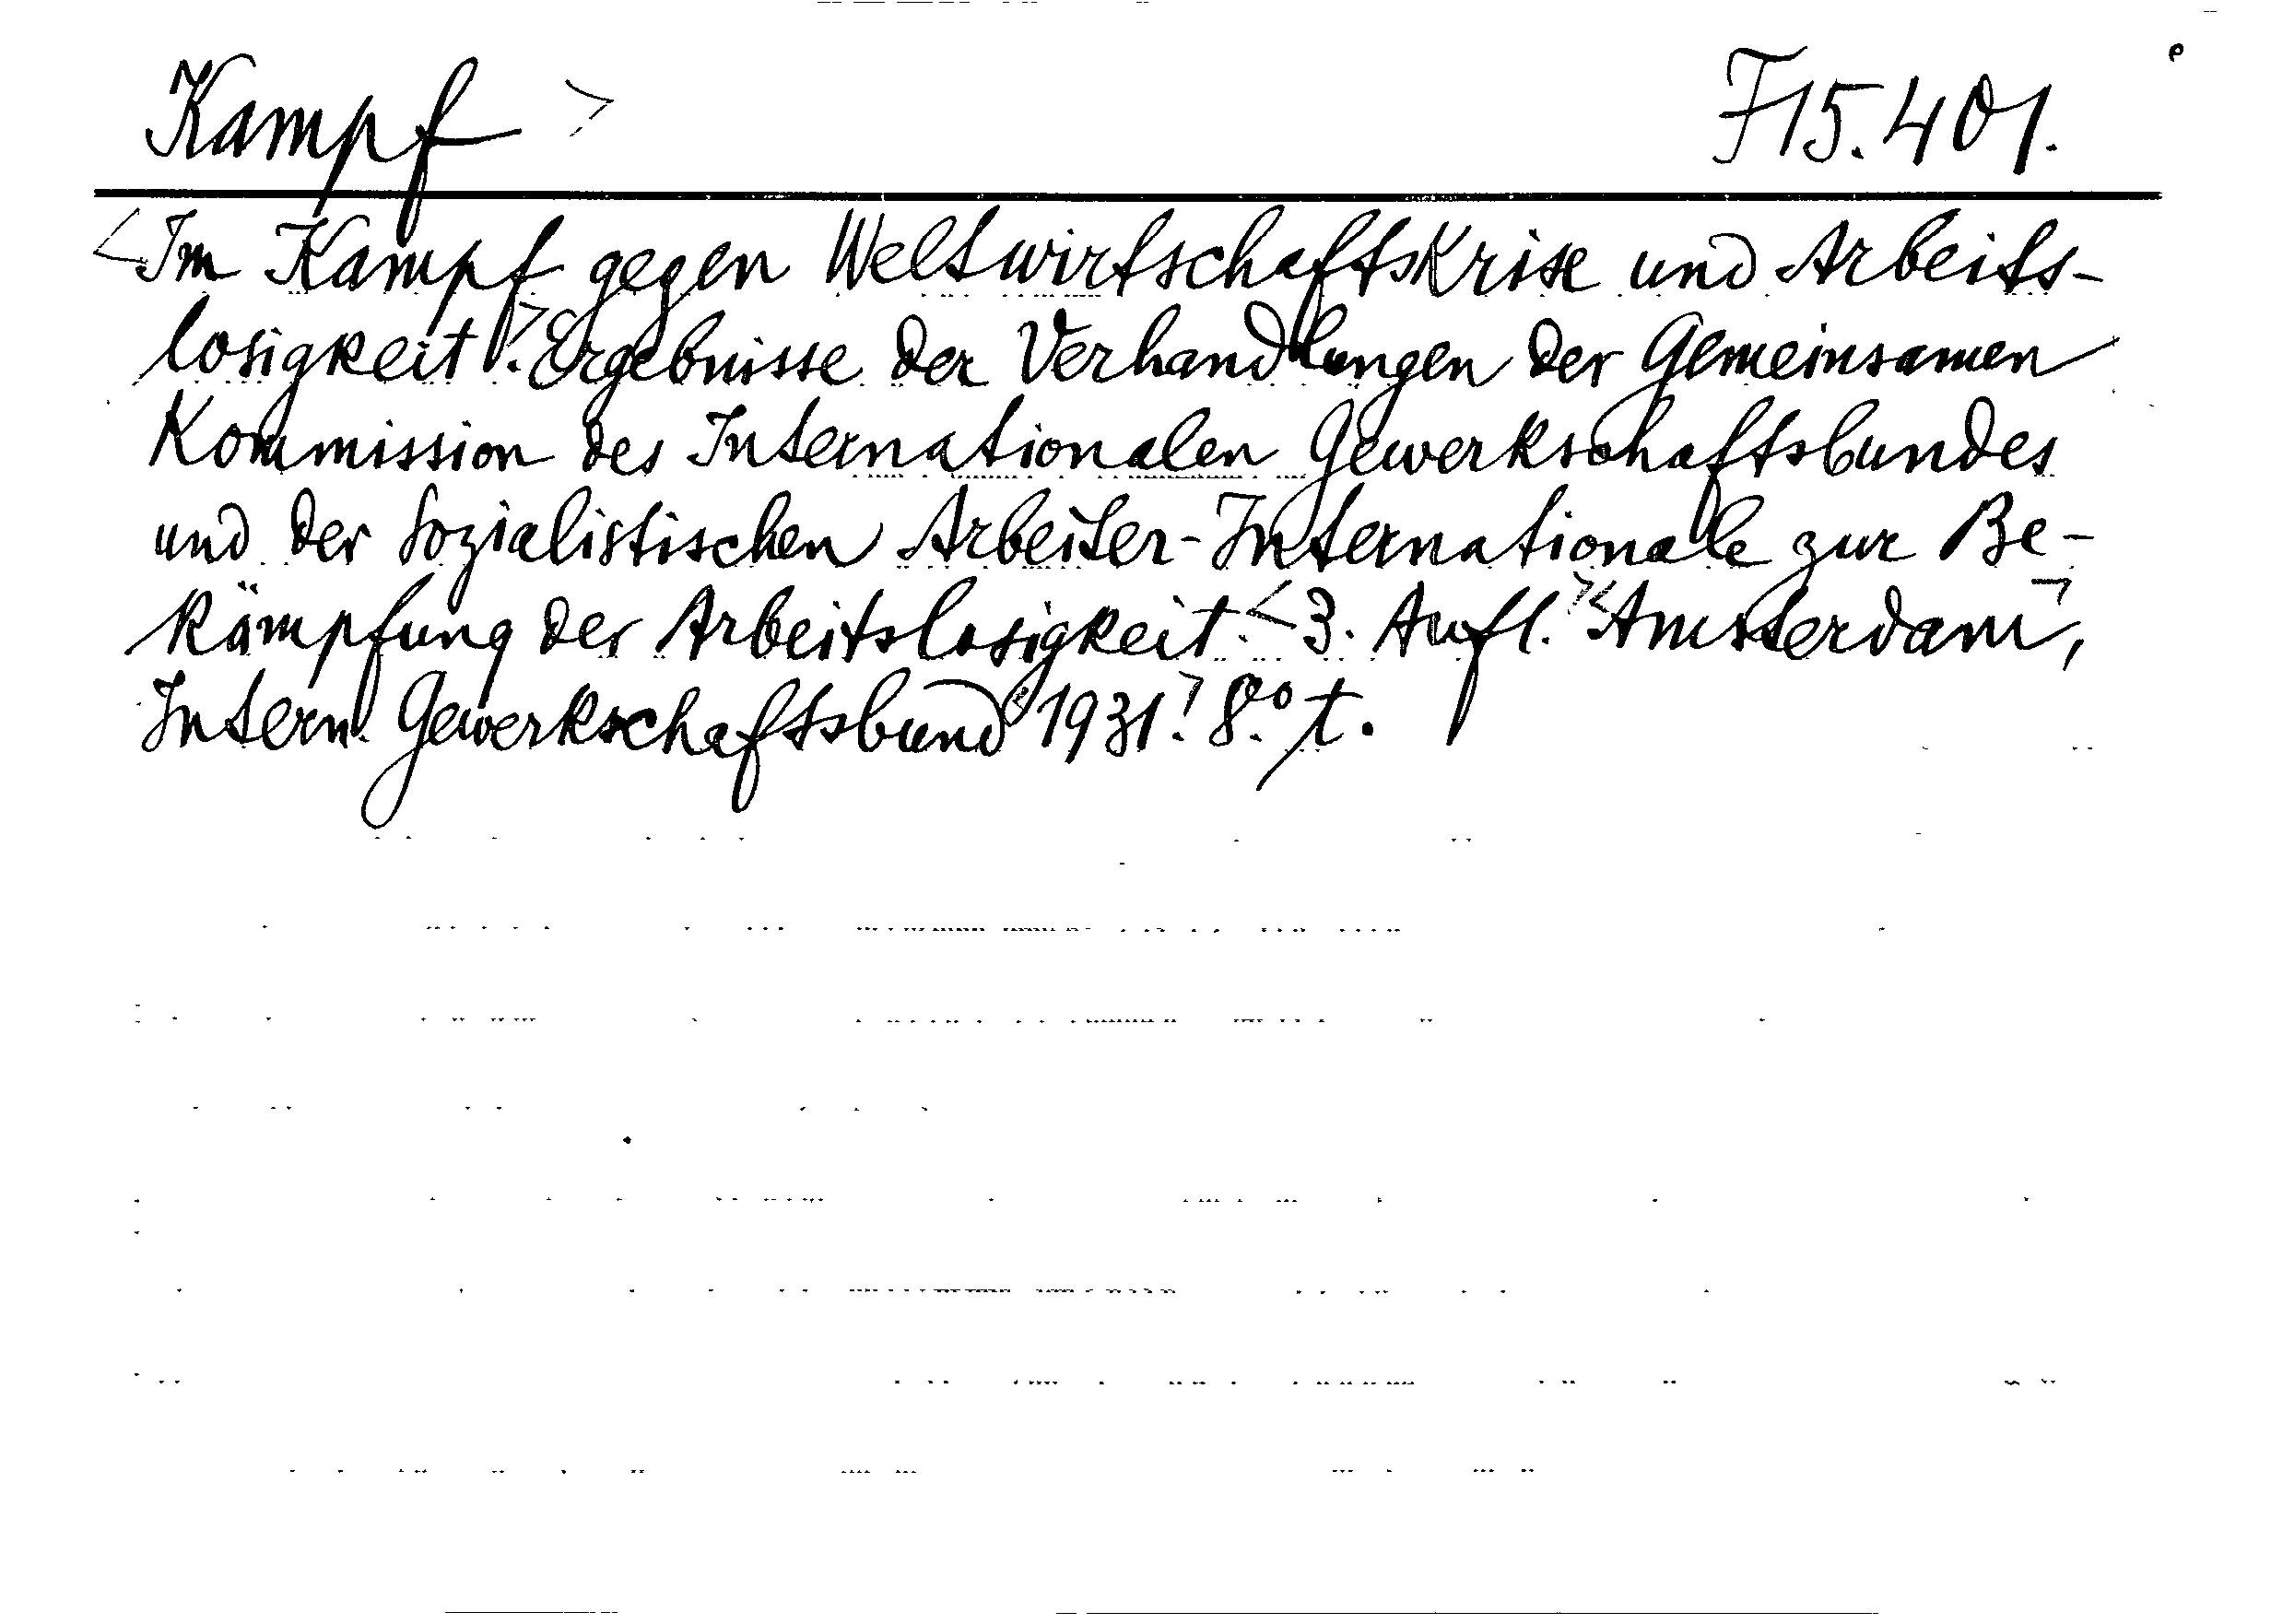 Kampf > F15.401.
<Im Kampf gegen Weltwirtschaftskrise und Arbeits-
losigkeit>. Ergebnisse der Verhandlungen der Gemeinsamen
Kommission des Internationalen Gewerkschaftsbundes
und der Sozialistischen Arbeiter-Internationale zur Be-
kämpfung der Arbeitslosigkeit. <3. Aufl.> <Amsterdam,
Intern. Gewerkschaftsbund 1931>. 8.° t.